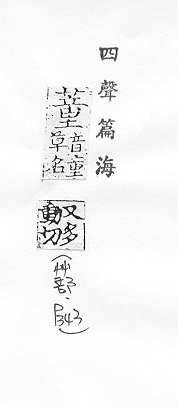 四聲篇海
蕫
音童
草名
又多
動切
(艸部．P343)